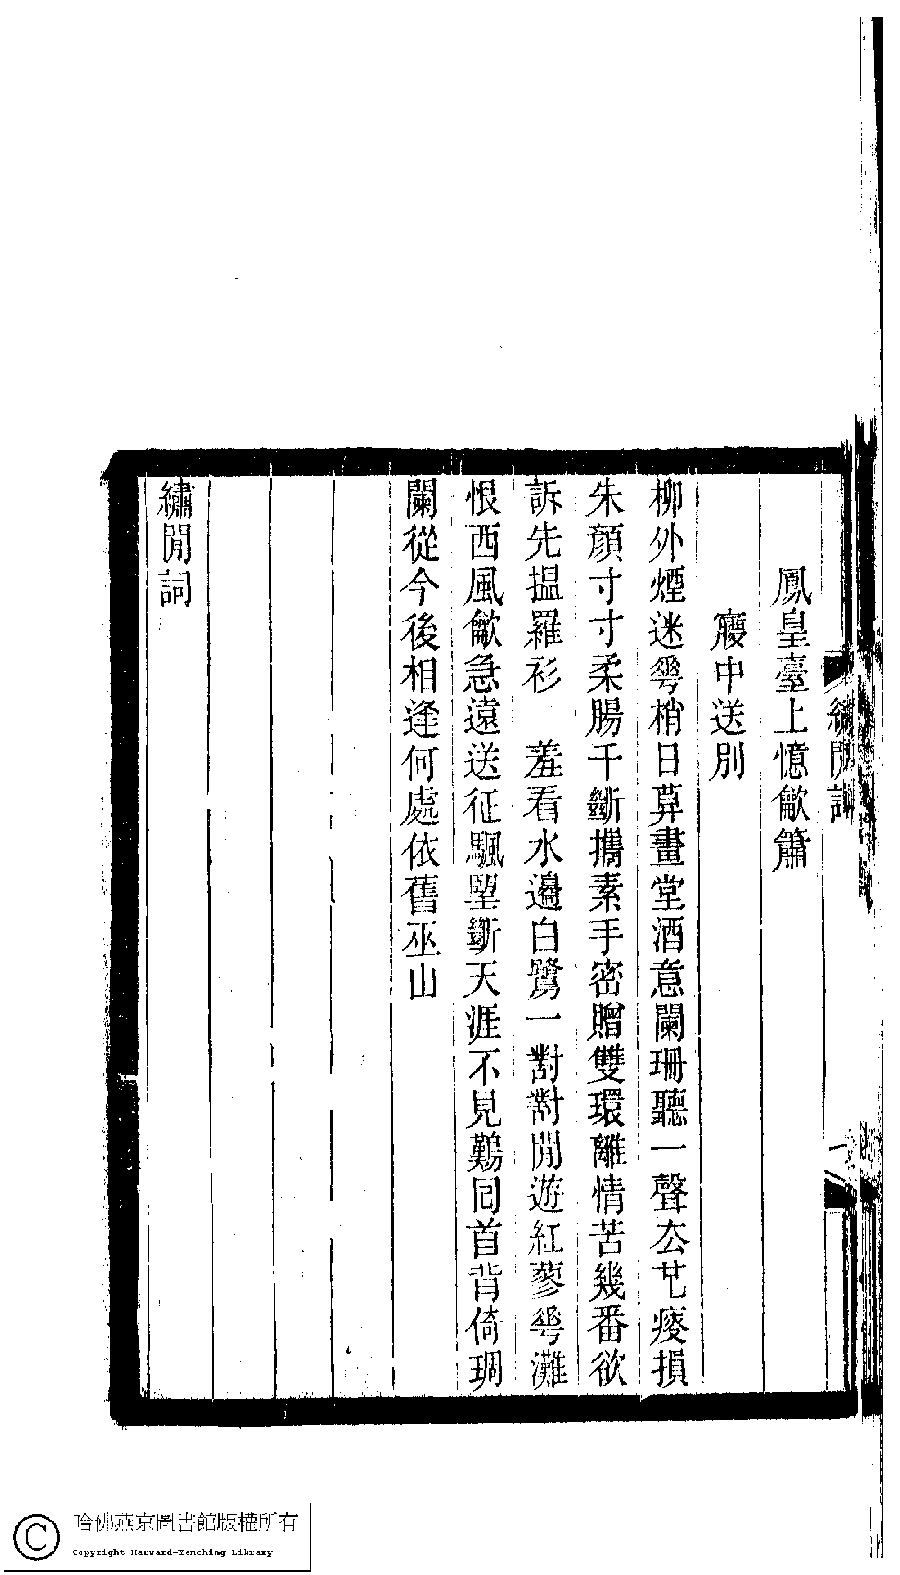 繡閒詞
一
鳳皇臺上憶龡簫
㝱中送別
柳外煙迷蕚梢日莫畫堂酒意闌珊聽一聲厺也痠損
朱顏寸寸柔腸千斷攜素手密贈雙環離情苦幾番欲
訴先搵羅衫　羞看水邊白鷺一對對閒遊紅蓼蕚灘
恨西風龡急遠送征颿朢斷天涯不見鷬回首背倚琱
闌從今後相逢何處依舊巫山
繡閒詞
哈佛燕京圖書館版權所有
Copyright Harvard-Yenching Library